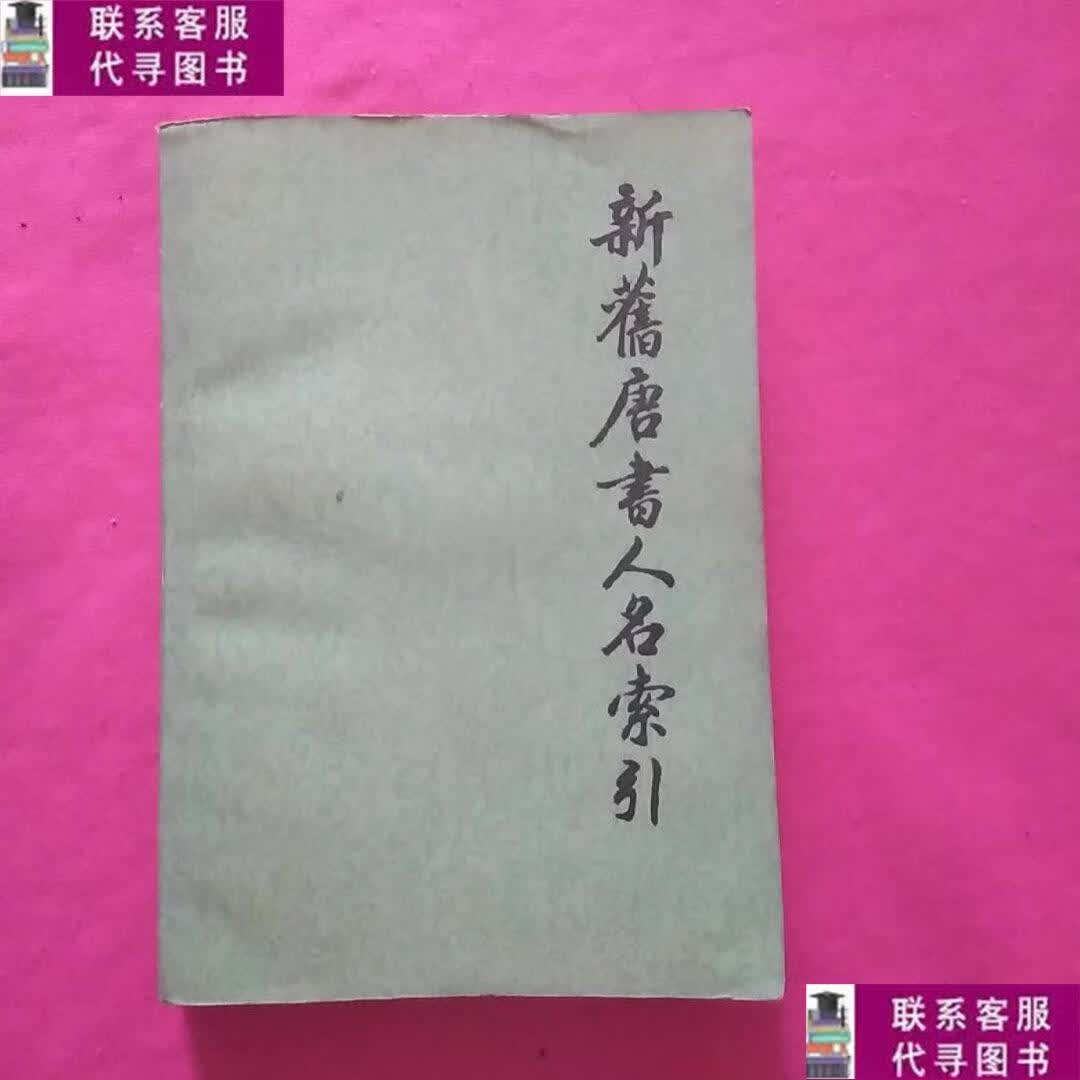 联系客服
代寻图书
新舊唐書人名索引
联系客服
代寻图书